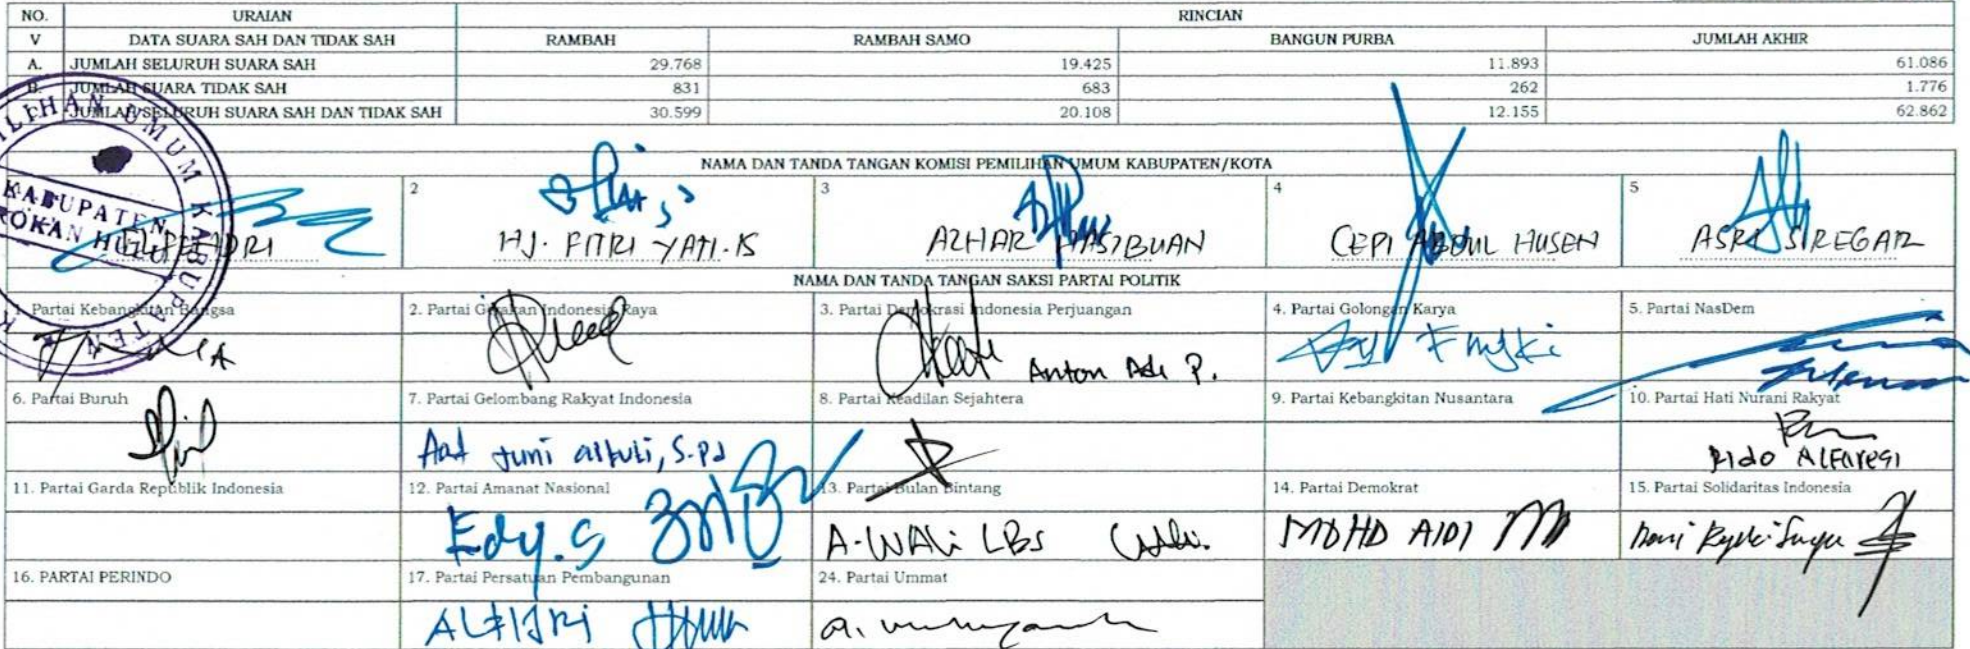 NO. URAIAN RINCIAN
V DATA SUARA SAH DAN TIDAK SAH RAMBAH RAMBAH SAMO BANGUN PURBA JUMLAH AKHIR
A. JUMLAH SELURUH SUARA SAH 29.768 19.425 11.893 61.086
B. JUMLAH SUARA TIDAK SAH 831 683 262 1.776
JUMLAH SELURUH SUARA SAH DAN TIDAK SAH 30.599 20.108 12.155 62.862
NAMA DAN TANDA TANGAN KOMISI PEMILIHAN UMUM KABUPATEN/KOTA
2 3 4 5
HJ. FITRI YATI.IS AZHAR HASIBUAN CEPI ABDUL HUSEN ASRI SIREGAR
UMUM KABUPATEN
KABUPATEN
ROKAN HULU
NAMA DAN TANDA TANGAN SAKSI PARTAI POLITIK
1. Partai Kebangkitan Bangsa 2. Partai Gerakan Indonesia Raya 3. Partai Demokrasi Indonesia Perjuangan 4. Partai Golongan Karya 5. Partai NasDem
Anton Ade P.
6. Partai Buruh 7. Partai Gelombang Rakyat Indonesia 8. Partai Keadilan Sejahtera 9. Partai Kebangkitan Nusantara 10. Partai Hati Nurani Rakyat
S.Pd
11. Partai Garda Republik Indonesia 12. Partai Amanat Nasional 13. Partai Bulan Bintang 14. Partai Demokrat 15. Partai Solidaritas Indonesia
Edy.S A-WALi LBS MOHD AIDI
16. PARTAI PERINDO 17. Partai Persatuan Pembangunan 24. Partai Ummat